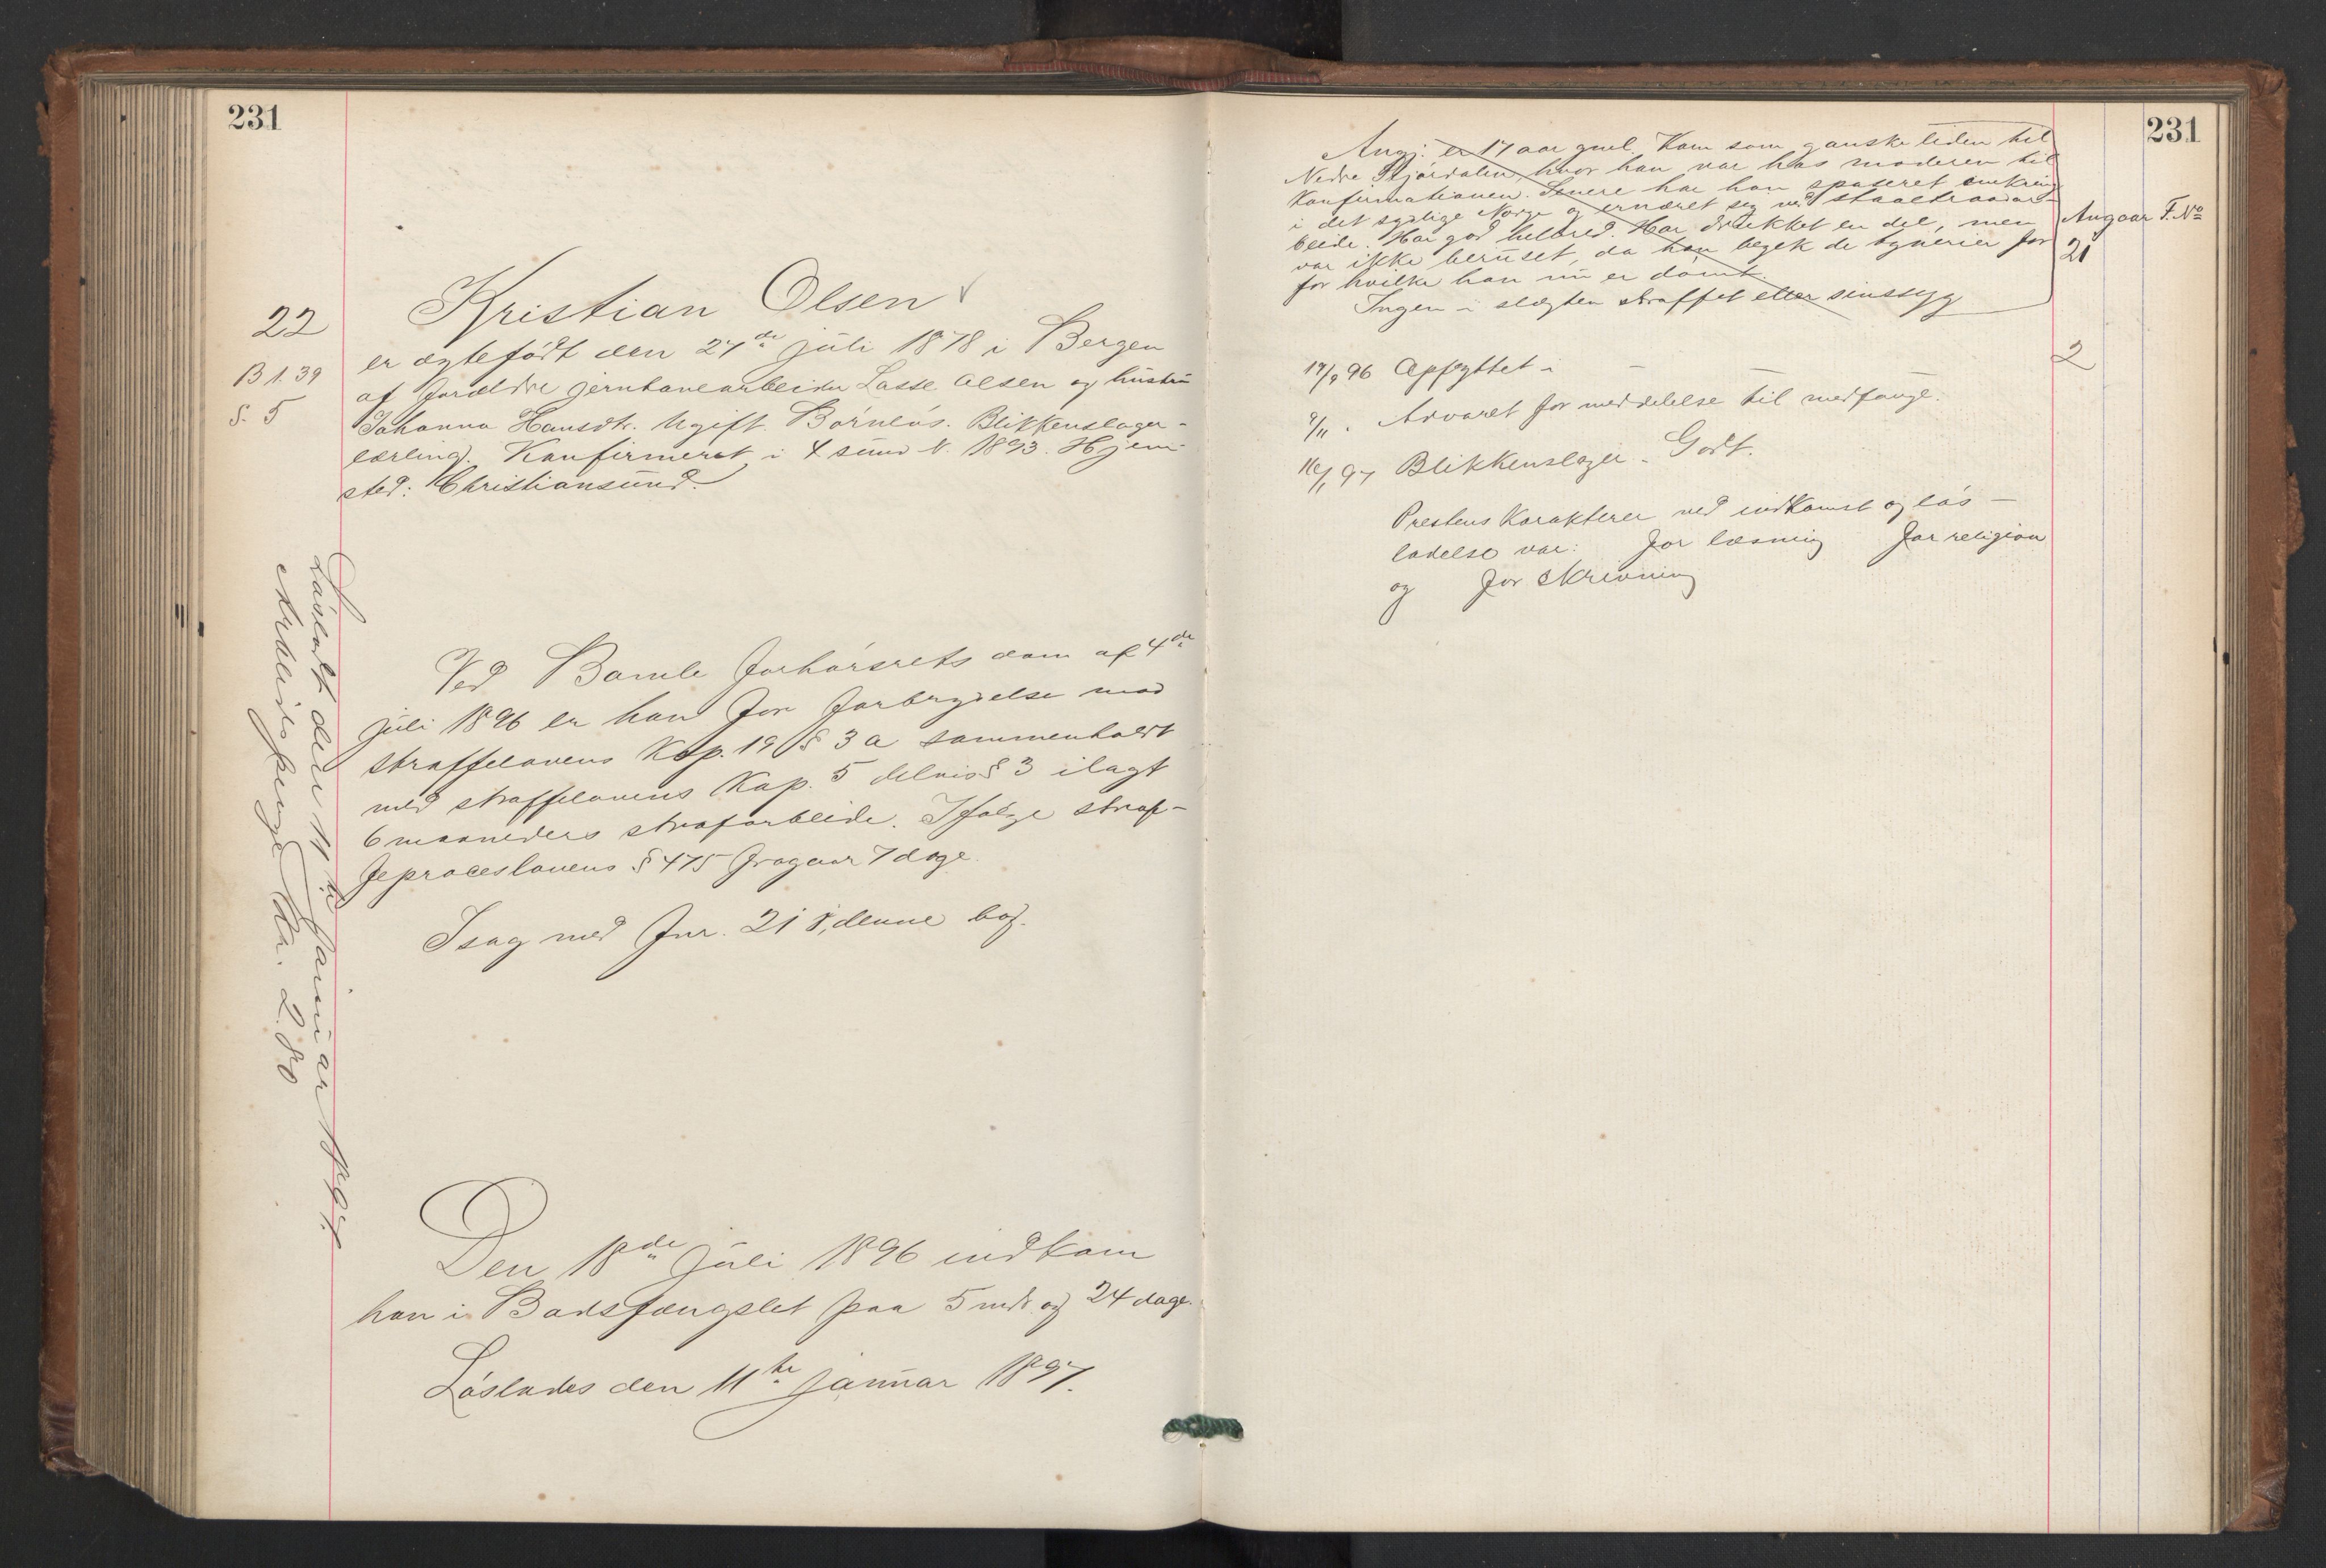 231
22
B 1. 39
S. 5
Kristian Olsen
er ægtefödt den 27de juli 1878 i Bergen
af forældre jernbanearbeider Lasse Olsen og hustru
Johanna Hansdtr. Ugift. Börnlös. Blikkenslager-
lærling. Konfirmeret i X sund N. 1893. Hjem-
sted: Christiansund.
Ved Bamle forhörsrets dom af 4de
juli 1896 er han for forbrydelse mod
straffelovens Kap. 19 § 3 a sammenholdt
med straffelovens Kap. 5 delvis § 3 ilagt
6 maaneders strafarbeide. Ifölge straf-
feproceslovens § 475 fragaar 7 dage.
I sag med fnr. 21 i denne bog.
Den 18de juli 1896 indkom
han i Bodsfængslet paa 5 mdr. og 24 dage.
Löslades den 11te januar 1897.
Löslodt den 11te januar 1897.
Arbeidspenge Kr. 2.80
231
Angj: er 17 aar gml. Kom som ganske liden til
Nedre Stjördalen, hvor han var hos moderen til
Konfirmationen. Senere har han spaseret omkring
i det sydlige Norge og ernæret seg ved staaltraadar-
beide. Har god helbred. Har drukket en del, men
var ikke beruset, da han begik de tyverier for
for hvilke han nu er dömt.
Ingen i slægten straffet eller sinssyg
Angaar F. No
21
17/9 96 Opflyttet i
2
9/11 . Advaret for meddelelse til medfange.
16/1 97 Blikkenslager. Godt.
Prestens Karakterer ved indkomst og lös-
ladelse var: for læsning for religion
og for skrivning